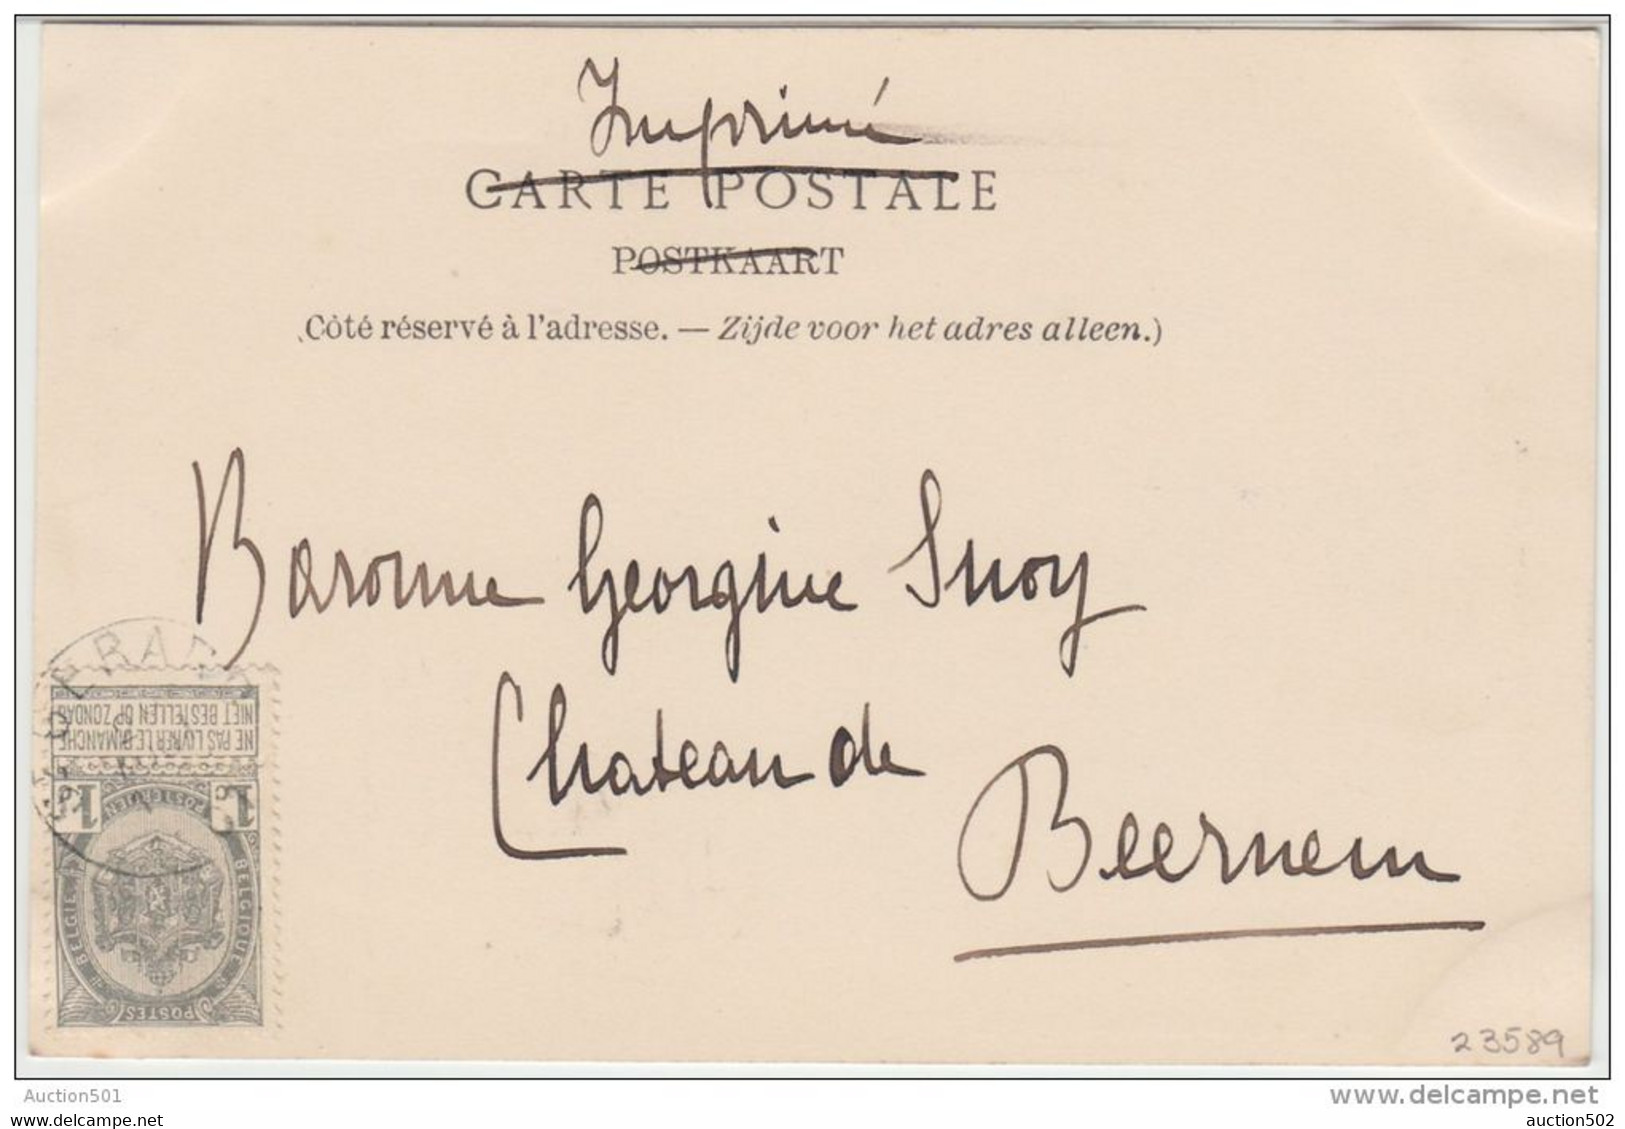 Imprimé
CARTE POSTALE
POSTKAART
(Côté réservé à l'adresse. — Zijde voor het adres alleen.)
Baronne Georgine Snoy
Chateau de
Beernem
NIET BESTELLEN OP ZONDAG
NE PAS LIVRER LE DIMANCHE
1c 1c
POSTERIJEN
BELGIE BELGIQUE
POSTES
23589
Auction501
www.delcampe.net
auction502
auction502